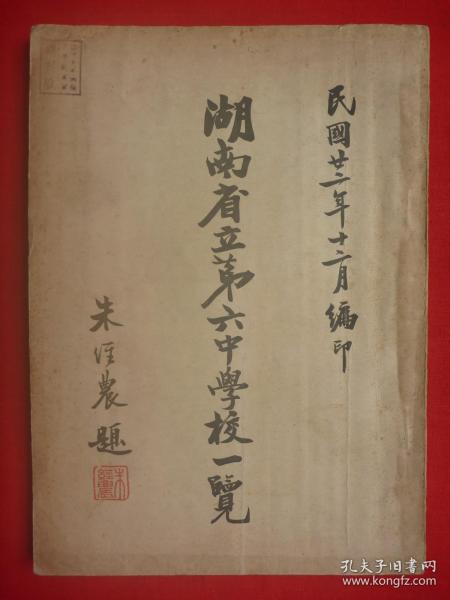 民國廿二年十二月編印
湖南省立第六中學校一覽
朱經農題
朱經農
孔夫子旧书网
www.kongfz.com